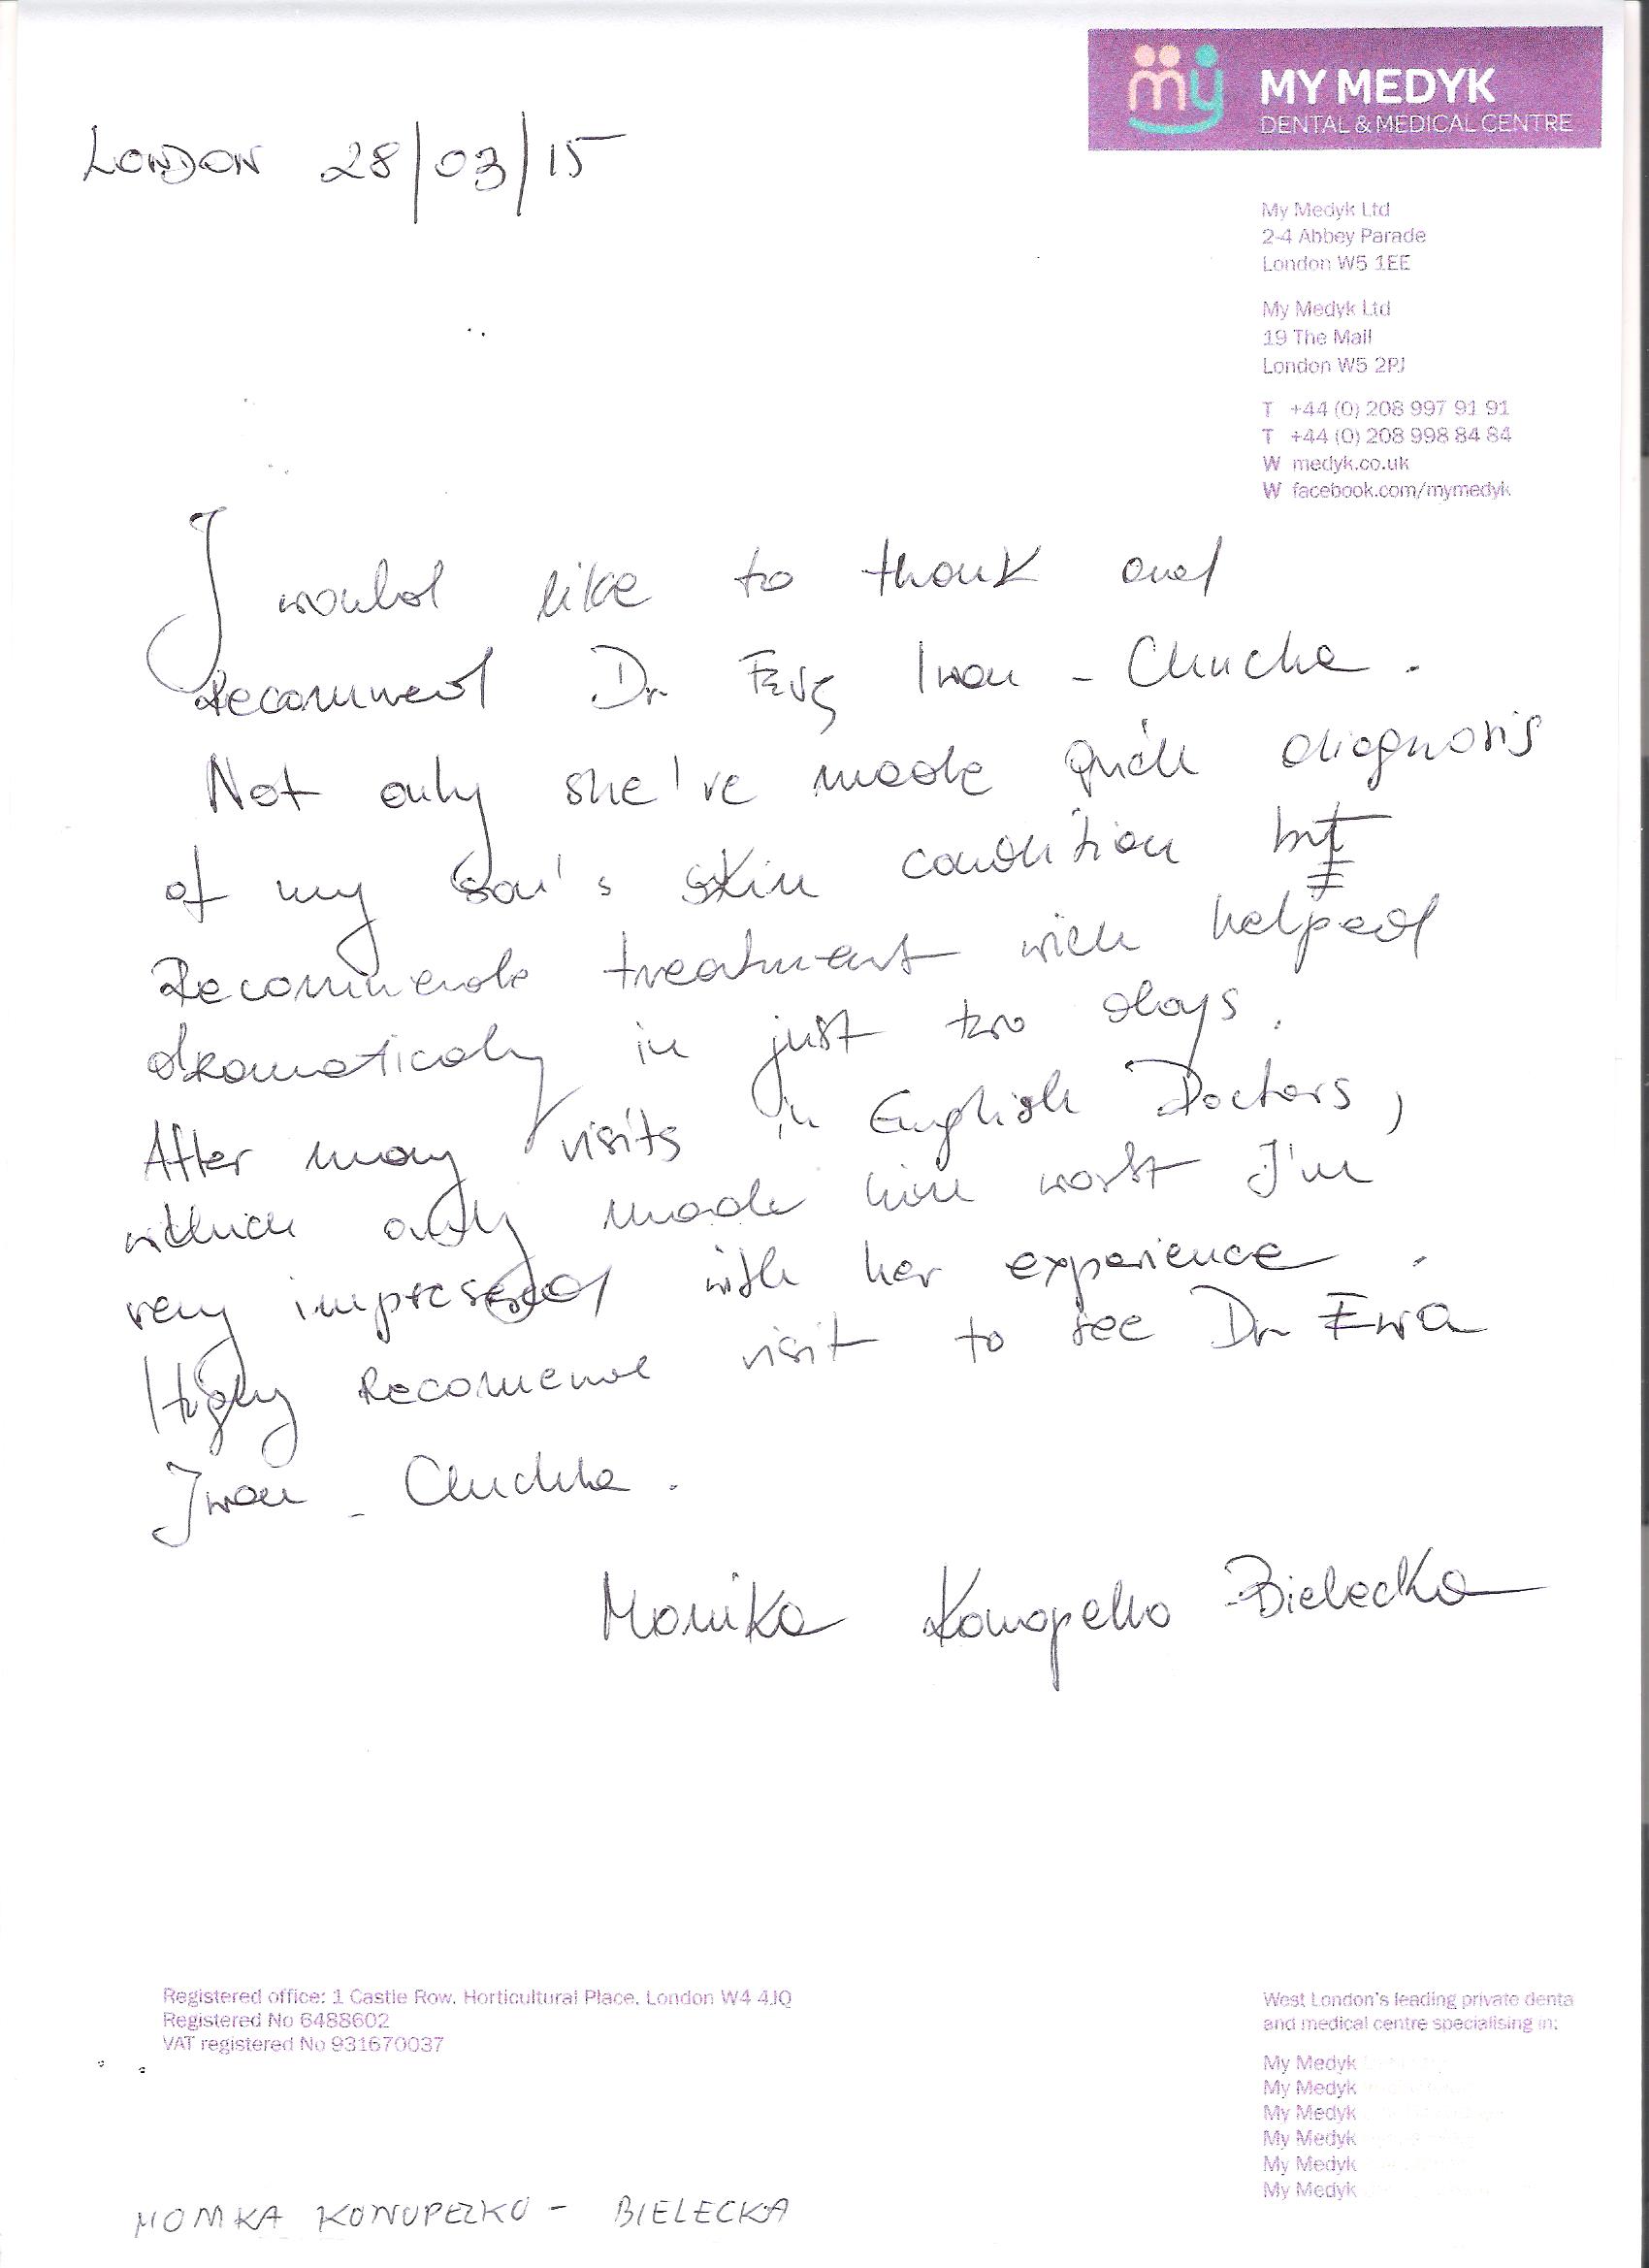 MY MEDYK
DENTAL & MEDICAL CENTRE
LONDON 28/03/15
My Medyk Ltd
2-4 Abbey Parade
London W5 1EE
My Medyk Ltd
19 The Mall
London W5 2PJ
T +44 (0) 208 997 91 91
T +44 (0) 208 998 84 84
W medyk.co.uk
W facebook.com/mymedyk
I would like to thank and
Recommend Dr Ewę Iwan - Chucha.
Not only she've made quick diagnosis
of my son's skin condition but
Recommende treatment wich helped
dramaticaly in just two days.
After many visits in English Doctors,
only made him worst I'm
very impressed with her experience.
Higly Recomend visit to see Dr Ewa
Iwan - Chucha.
Monika Konopelko Bielecka
Registered office: 1 Castle Row, Horticultural Place, London W4 4JQ
Registered No 6488602
VAT registered No 931670037
West London's leading private denta
and medical centre specialising in:
My Medyk
My Medyk
My Medyk
My Medyk
My Medyk
My Medyk
MONIKA KONOPELKO - BIELECKA